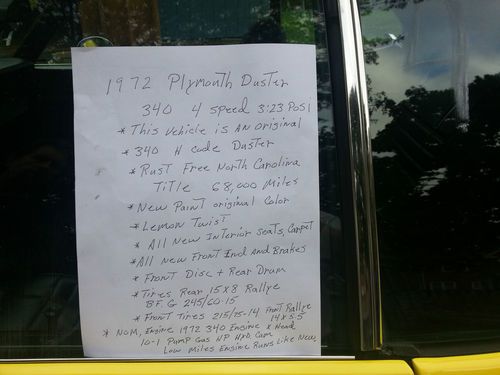 1972 Plymouth Duster
340 4 speed 3:23 Posi
* This Vehicle is AN original
* 340 H code Duster
* Rust Free North Carolina
Title 68,000 Miles
* New Paint original Color
* Lemon Twist
* All New Interior Seats, Carpet
* All New Front End And Brakes
* Front Disc + Rear Drum
* Tires Rear 15x8 Rallye
BF. G 245/60-15
* Front Tires 215/75-14 Front Rallye
14x5.5
* NOM, Engine 1972 340 Engine X Head
10-1 Pump Gas HP Hyd. Cam
Low Miles Engine Runs Like New